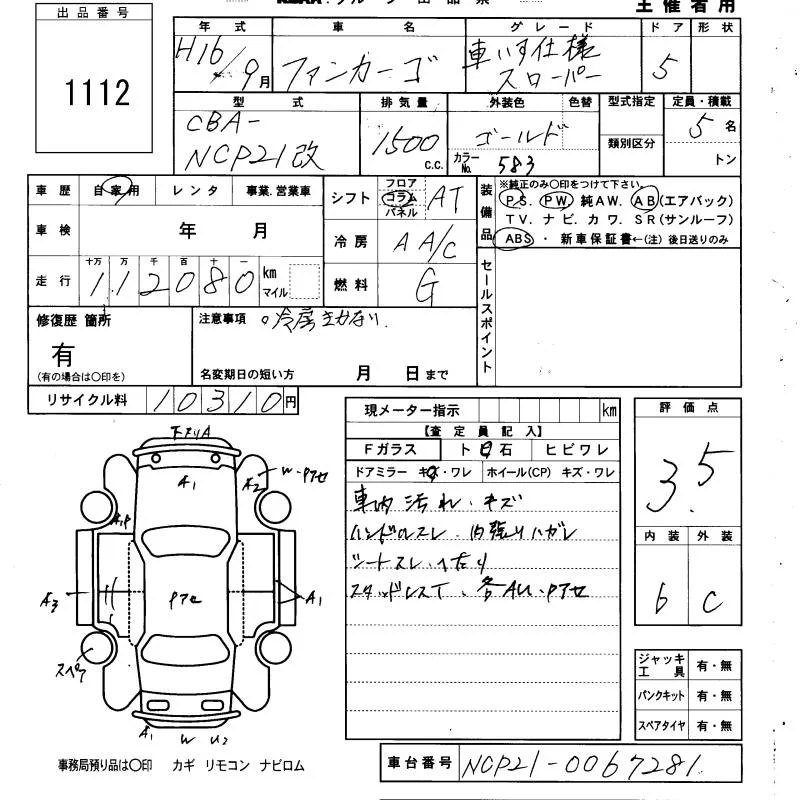 主催者用
出品番号
1112
年式 車名 グレード ドア 形状
H16/9月 ファンカーゴ 車いす仕様 スローパー 5
型式 排気量 外装色 色替 型式指定 定員・積載
CBA-NCP21改 1500 C.C. ゴールド カラーNo. 583 類別区分 5名 トン
車歴 自家用 レンタ 事業.営業車
シフト フロア コラム パネル AT
装備品 ※純正のみ○印をつけて下さい。
PS. PW 純AW. AB(エアバック)
TV. ナビ. カワ. SR(サンルーフ)
ABS・新車保証書←(注)後日送りのみ
車検 年 月
冷房 A A/C
走行 十万 万 千 百 十 一
112080 km マイル
燃料 G
セールスポイント
修復歴 箇所
有
(有の場合は○印を)
注意事項 。冷房きかない.
名変期日の短い方 月 日まで
リサイクル料 10310円
現メーター指示 km
【査定員記入】
Fガラス ト 石 ヒビワレ
ドアミラー キズ・ワレ ホイール(CP) キズ・ワレ
車内 汚れ・キズ
ハンドルスレ. 内張りハガレ
シートスレ・へたり
スタッドレスT. 各AU・Pアセ
評価点
3.5
内装 外装
6 C
ジャッキ工具 有・無
パンクキット 有・無
スペアタイヤ 有・無
下マワリA
A1
A2
W・Pアセ
A,P
A3
Pアセ
A1
スペア
A1 W U2
事務局預り品は○印 カギ リモコン ナビロム
車台番号 NCP21-0067281